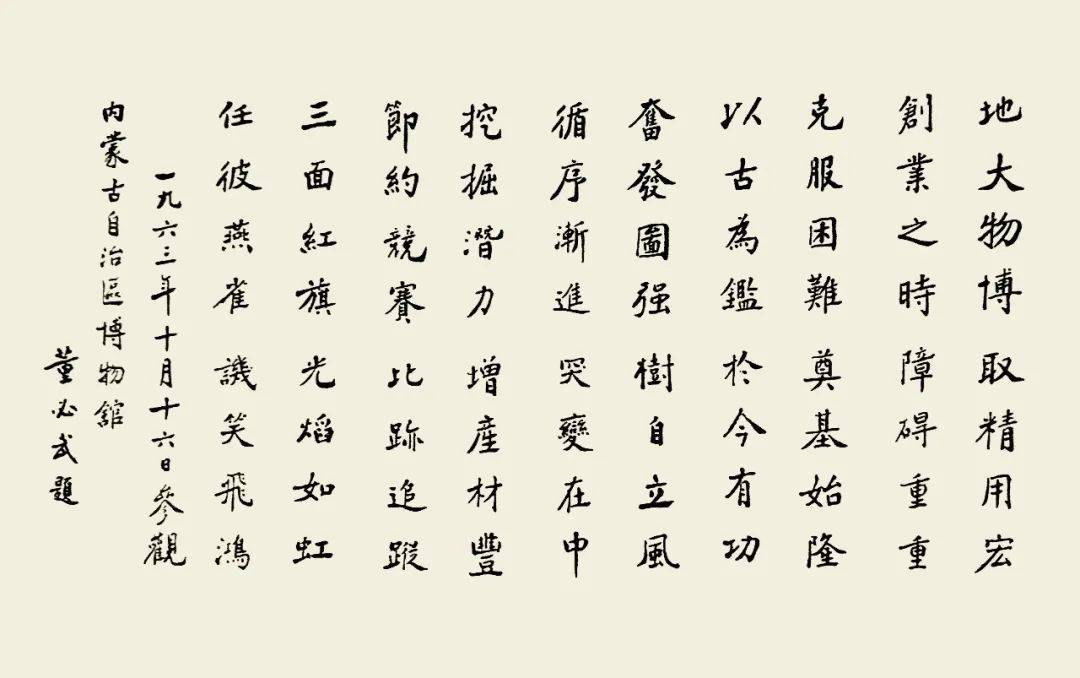 地大物博取精用宏
創業之時障碍重重
克服困難奠基始隆
以古為鑑於今有功
奮發圖强樹自立風
循序漸進突變在中
挖掘潛力增産材豐
節約競賽比跡追蹤
三面紅旗光焰如虹
任彼燕雀譏笑飛鴻
一九六三年十月十六日參觀
内蒙古自治區博物舘
董必武題